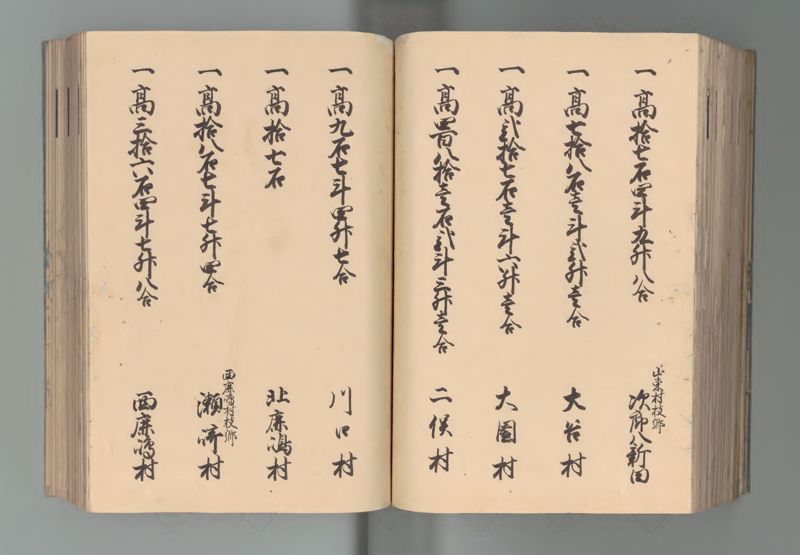 一高拾七石四斗九升八合
山東村枝郷
次郎八新田
一高七拾八石壱斗弐升壱合
大谷村
一高弐拾七石壱斗六升壱合
大園村
一高四百八拾壱石弐斗三升壱合
二俣村
一高九石七斗四升七合
川口村
一高拾七石
北鹿嶋村
一高拾八石七斗七升四合
西鹿嶋村枝郷
瀬崎村
一高三拾六石四斗七升八合
西鹿嶋村